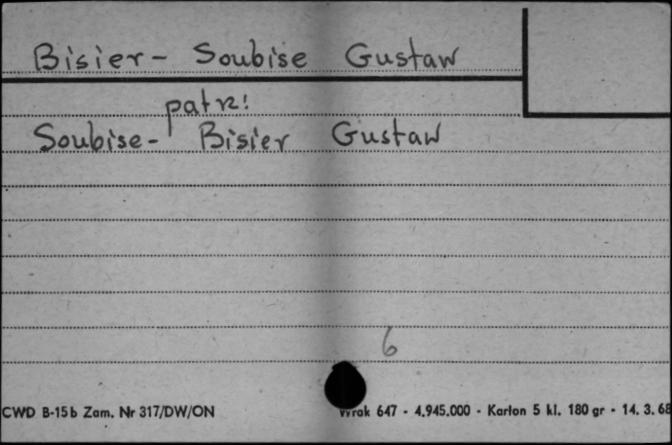 Bisier - Soubise Gustaw
patrz!
Soubise - Bisier Gustaw
6
CWD B-15b Zam. Nr 317/DW/ON Wrak 647 - 4.945.000 - Karton 5 kl. 180 gr - 14. 3. 68